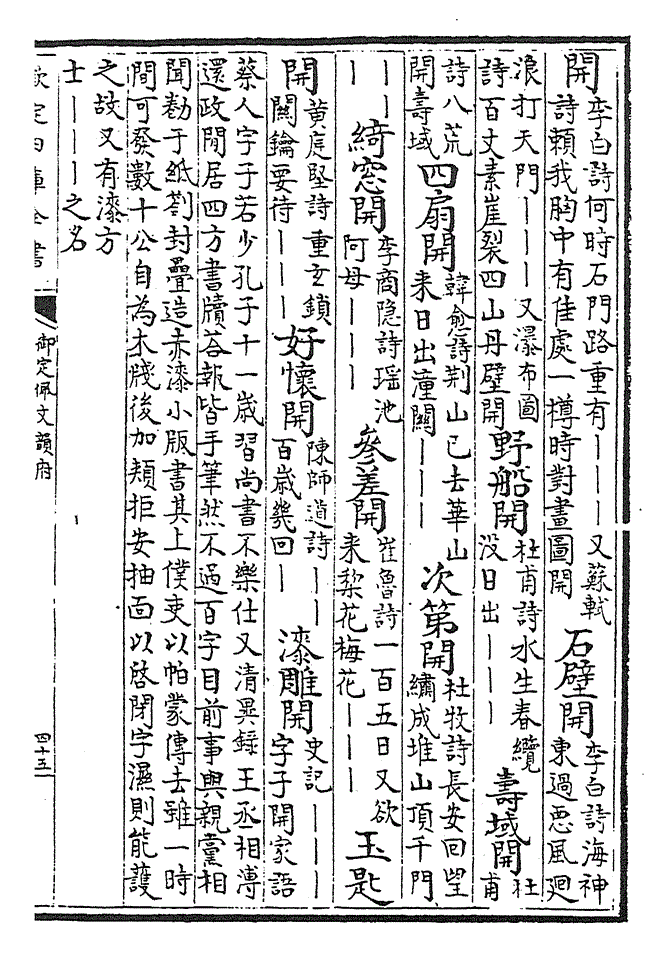 開 李白詩何時石門路重有｜｜｜又蘇軾詩頼我胸中有佳處一樽時對畫圖開 石壁開 李白詩海神東過惡風廻
浪打天門｜｜｜又瀑布圖詩百丈素崖裂四山丹壁開 野船開 杜甫詩水生春纜没日出｜｜｜ 壽域開 杜甫
詩八荒開壽域 四扇開 韓愈詩荆山已去華山来日出潼關｜｜｜ 次第開 杜牧詩長安回望繡成堆山頂千門
｜｜｜ 綺窓開 李商隐詩瑶池阿母｜｜｜ 參差開 崔魯詩一百五日又欲来梨花梅花｜｜｜ 玉匙
開 黄庭堅詩重玄鎖關鑰要待｜｜｜ 好懷開 陳師道詩｜｜百歳幾回｜ 漆雕開 史記｜｜｜字子開家語
蔡人字子若少孔子十一歳習尚書不樂仕又清異録王丞相溥
還政閒居四方書牘荅報皆手筆然不過百字目前事與親黨相
聞勌于紙劄封疊造赤漆小版書其上僕吏以帕蒙傳去雖一時
間可發數十公自為木牋後加頰拒安抽面以啓閉字濕則能護
之故又有漆方
士｜｜｜之名
欽定四庫全書
御定佩文韻府
四十五